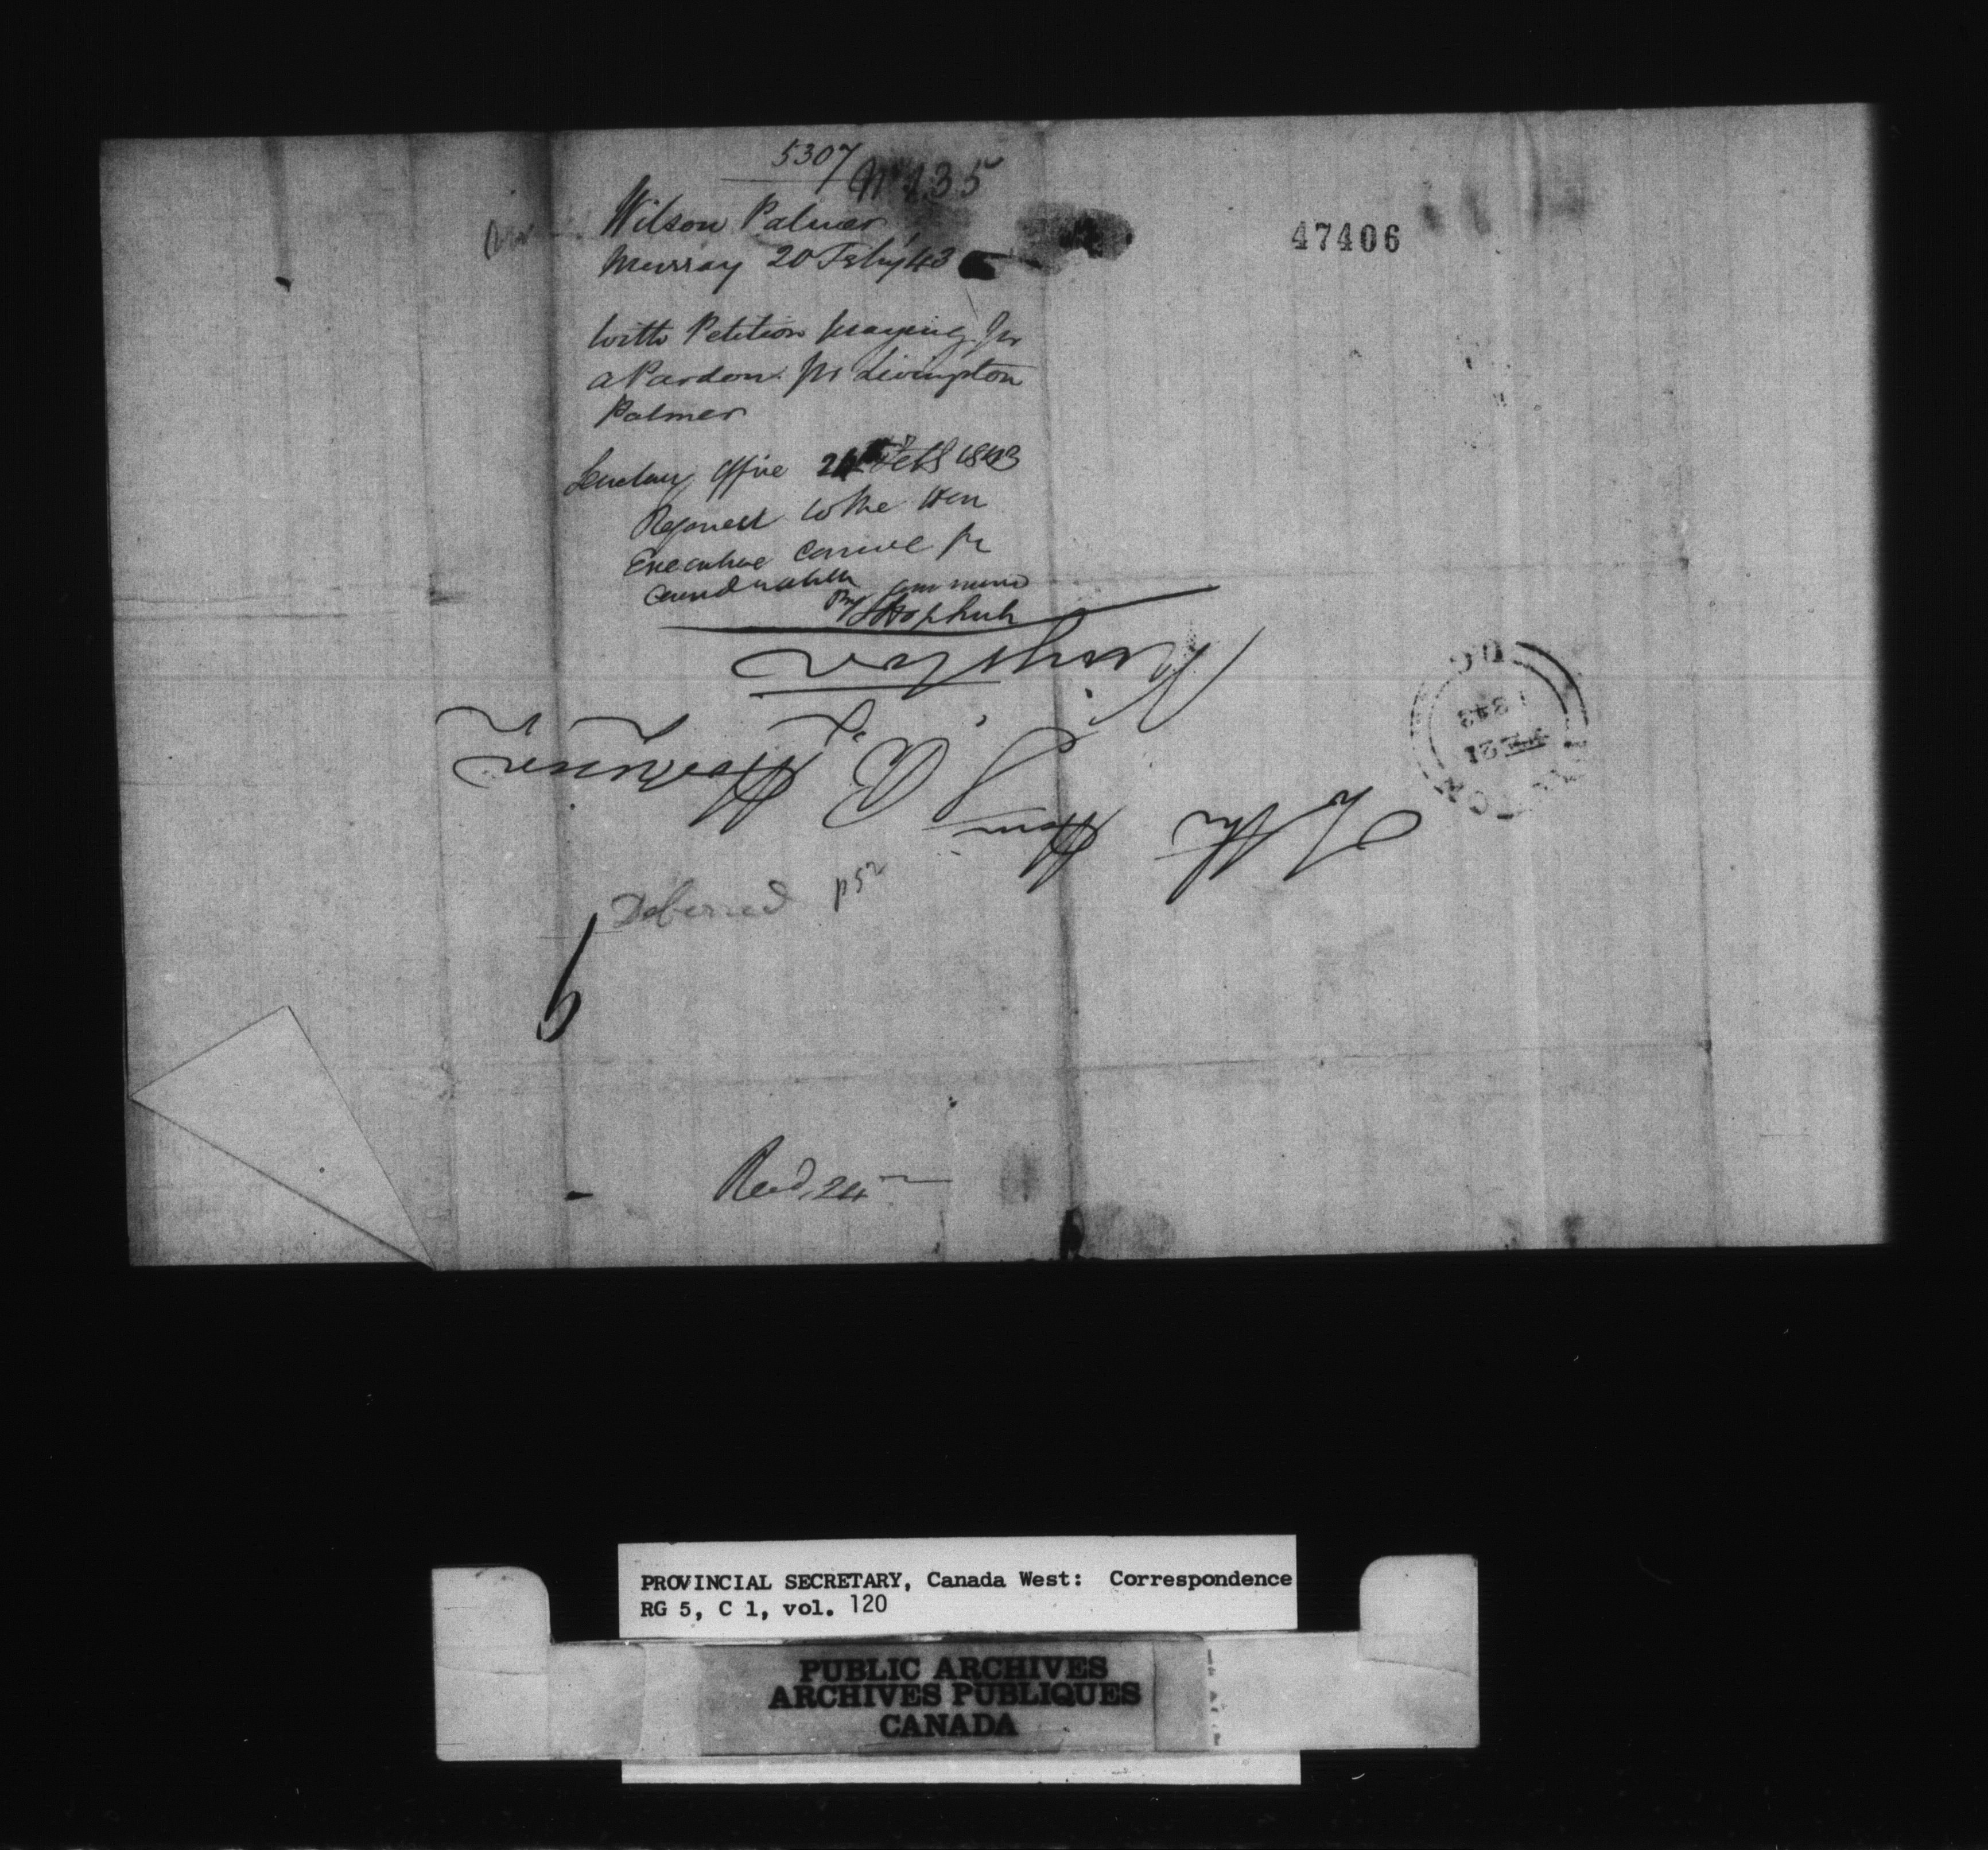 5307
No 135
47406
Wilson Palmer
Murray 20 Feby '43
With Petition praying for
a Pardon for Livingston
Palmer
Secretary Office 24 Feb 1843
Request to the Hon
Executive Council for
By Command
S B Harrison
To the Hon S. B. Harrison
Kingston
21
1843
Deferred p 52
6
Recd. 24
PROVINCIAL SECRETARY, Canada West: Correspondence
RG 5, C 1, vol. 120
PUBLIC ARCHIVES
ARCHIVES PUBLIQUES
CANADA